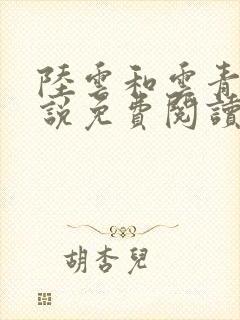 陸雲和雲青
說免費閱讀
胡杏兒